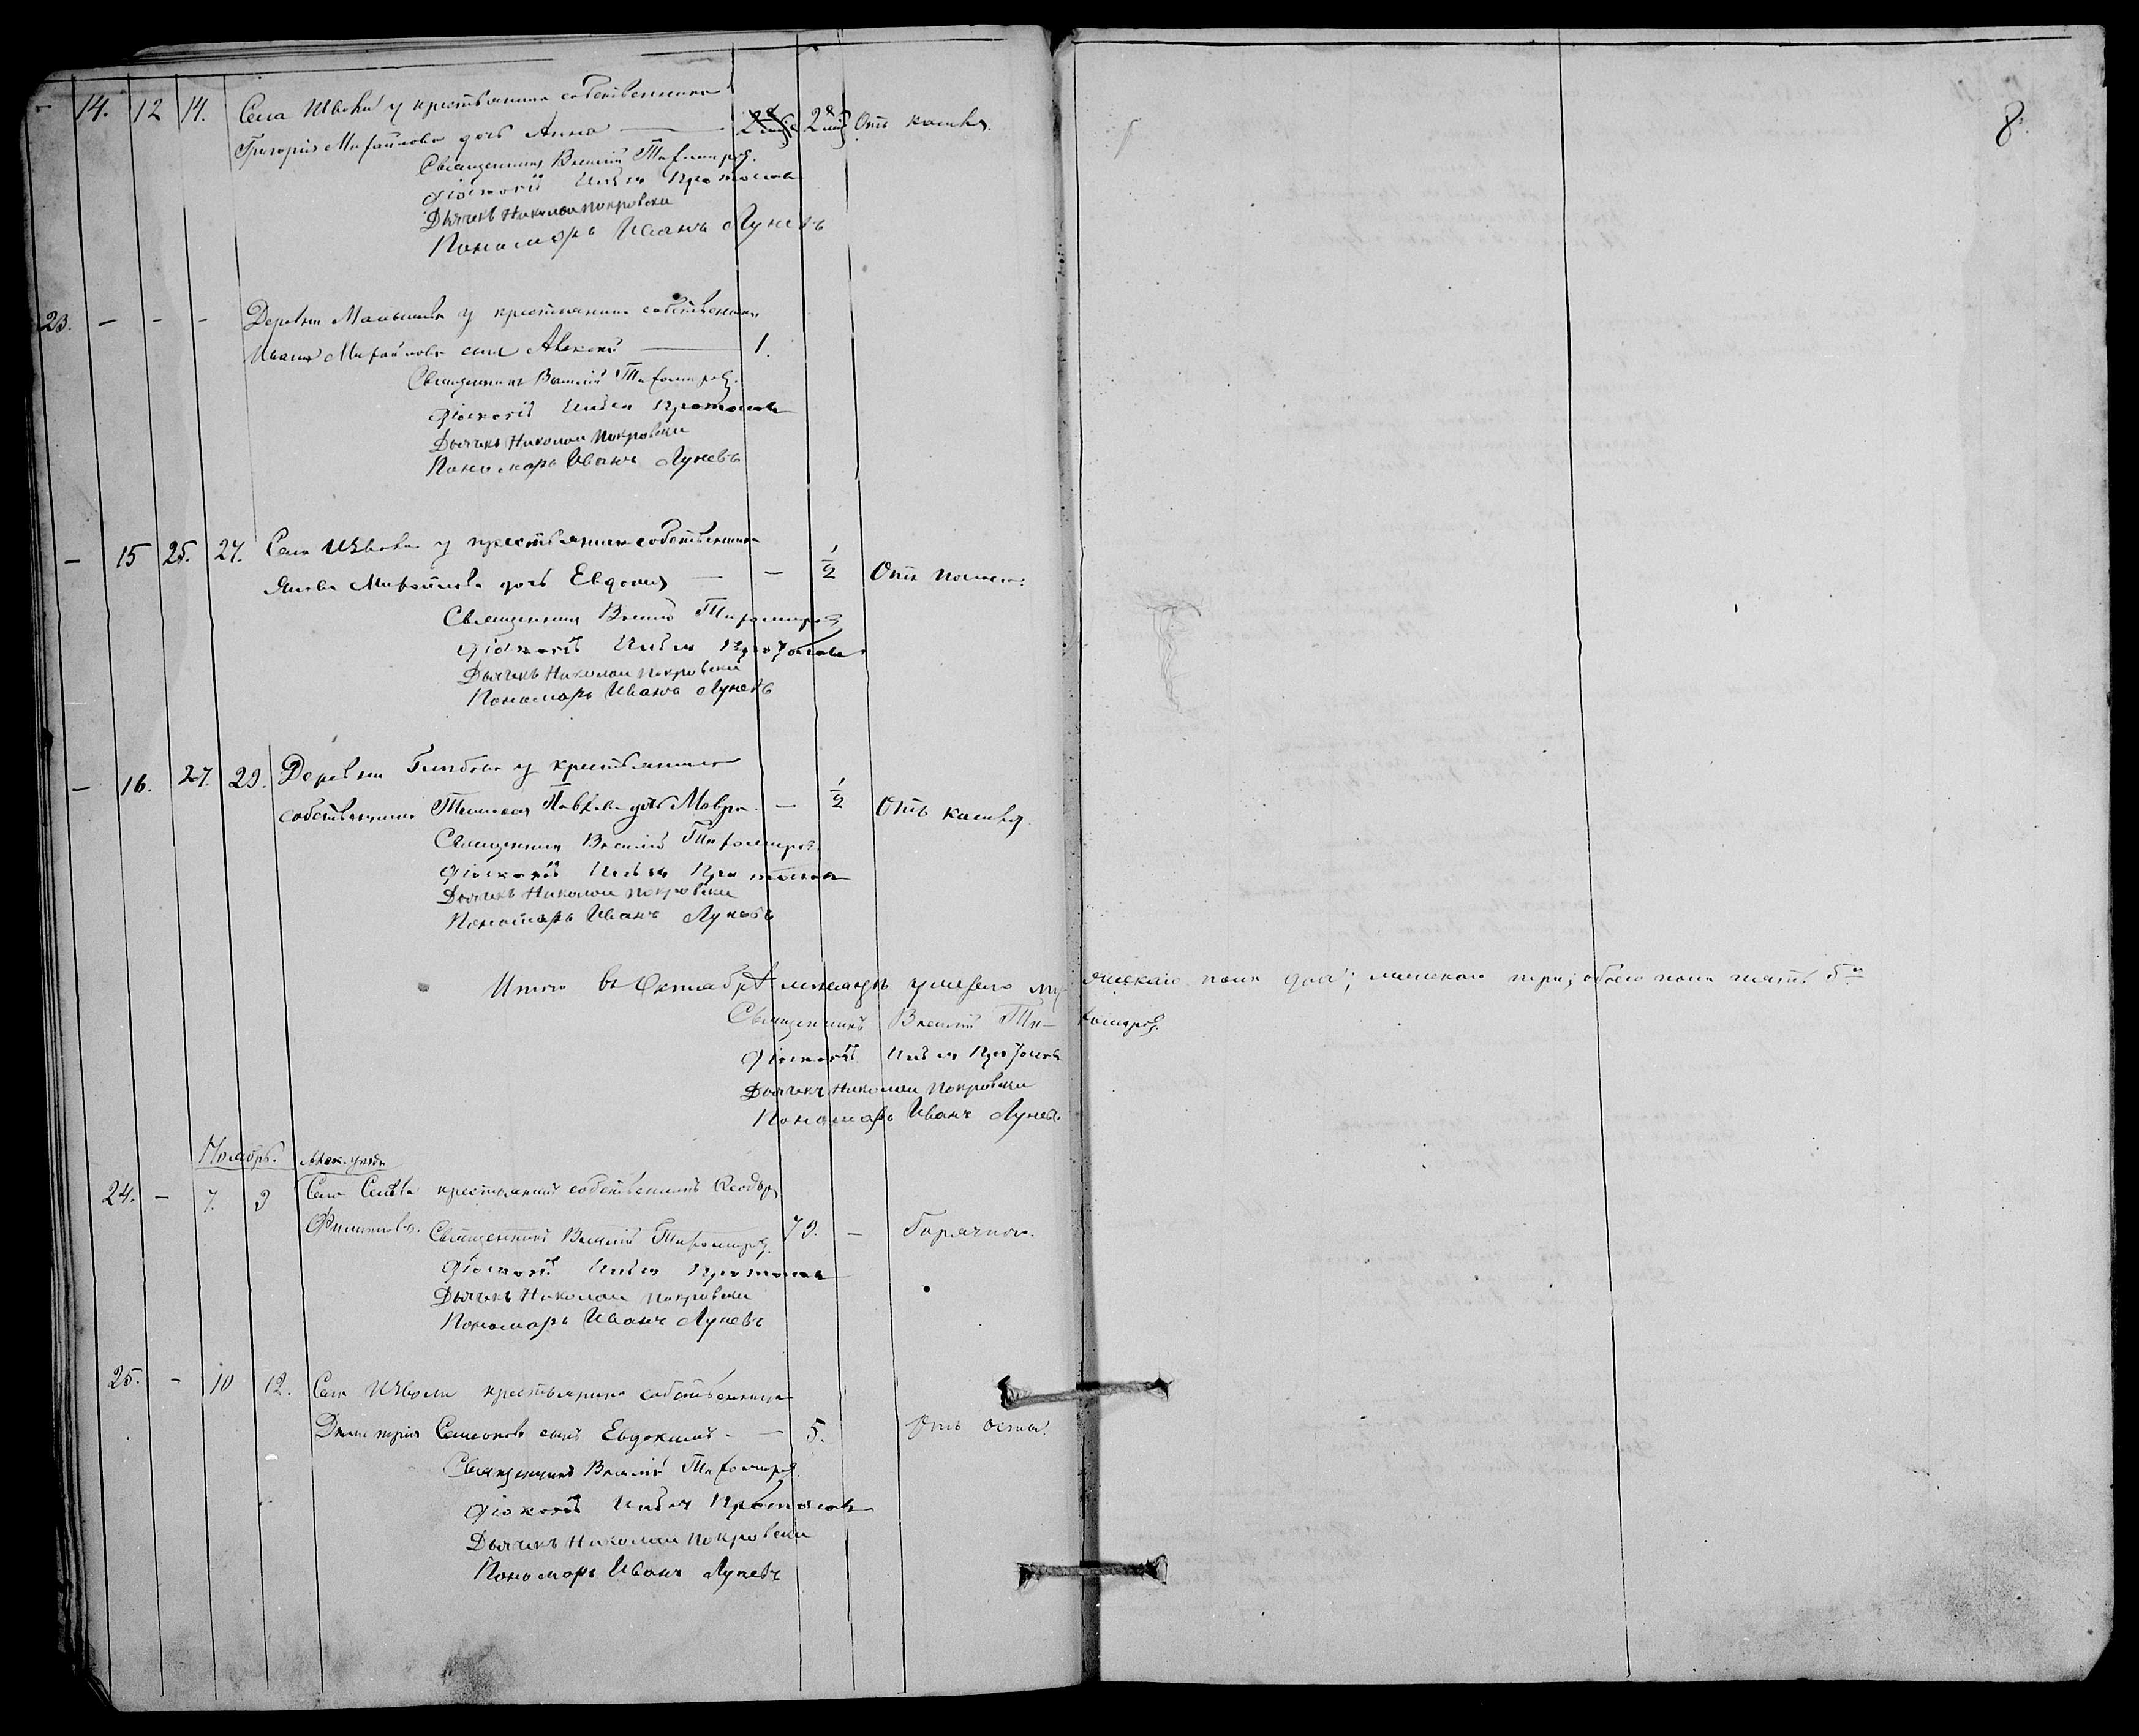 - 14. 12 14. Села Изволи у крестьянина собственника
Григорія Михайлова дочь Анна — 2 2 Отъ кашля.
Священникъ Василій Тихомировъ.
Діаконъ Илья Протопоповъ
Дьячекъ Николай Покровски
Пономарь Иванъ Луневъ
8.
23. - - - Деревни у крестьянина собственника
Ивана Михайлова сынъ Алексѣй — 1.
Священникъ Василій Тихомировъ.
Діаконъ Илья
Дьячекъ Николай Покровски
Пономарь Иванъ Луневъ
- 15 25. 27. Села Изволи у крестьянина собственника
Якова Михайлова дочь Евдокія — - 1/2 Отъ
Священникъ Василій Тихомировъ
Діаконъ Илья
Дьячекъ Николай Покровски
Пономарь Иванъ Луневъ
- 16. 27. 29. Деревни у крестьянина
собственника дочь Мавра. — 1/2 Отъ кашля
Священникъ Василій Тихомировъ.
Діаконъ Илья
Дьячекъ Николай Покровски
Пономарь Иванъ Луневъ
Итого въ Октябрѣ мѣсяцѣ умерло мужескаго пола два; женскаго три; обоего пола пять 5
Священникъ Василій Тихомировъ.
Діаконъ Илья
Дьячекъ Николай Покровски
Пономарь Иванъ Луневъ.
Ноябрь.
24. - 7. 9 Села крестьянинъ собственникъ Ѳеодоръ
Филиповъ. Священникъ Василій Тихомировъ. 79. — Горячкою.
Діаконъ Илья
Дьячекъ Николай Покровски
Пономарь Иванъ Луневъ
25. - 10 12. Села Изволи крестьянина собственника
Димитрія Семенова сынъ Евдокимъ - — 5. Отъ оспы.
Священникъ Василій Тихомировъ.
Діаконъ Илья
Дьячекъ Николай Покровски
Пономарь Иванъ Луневъ